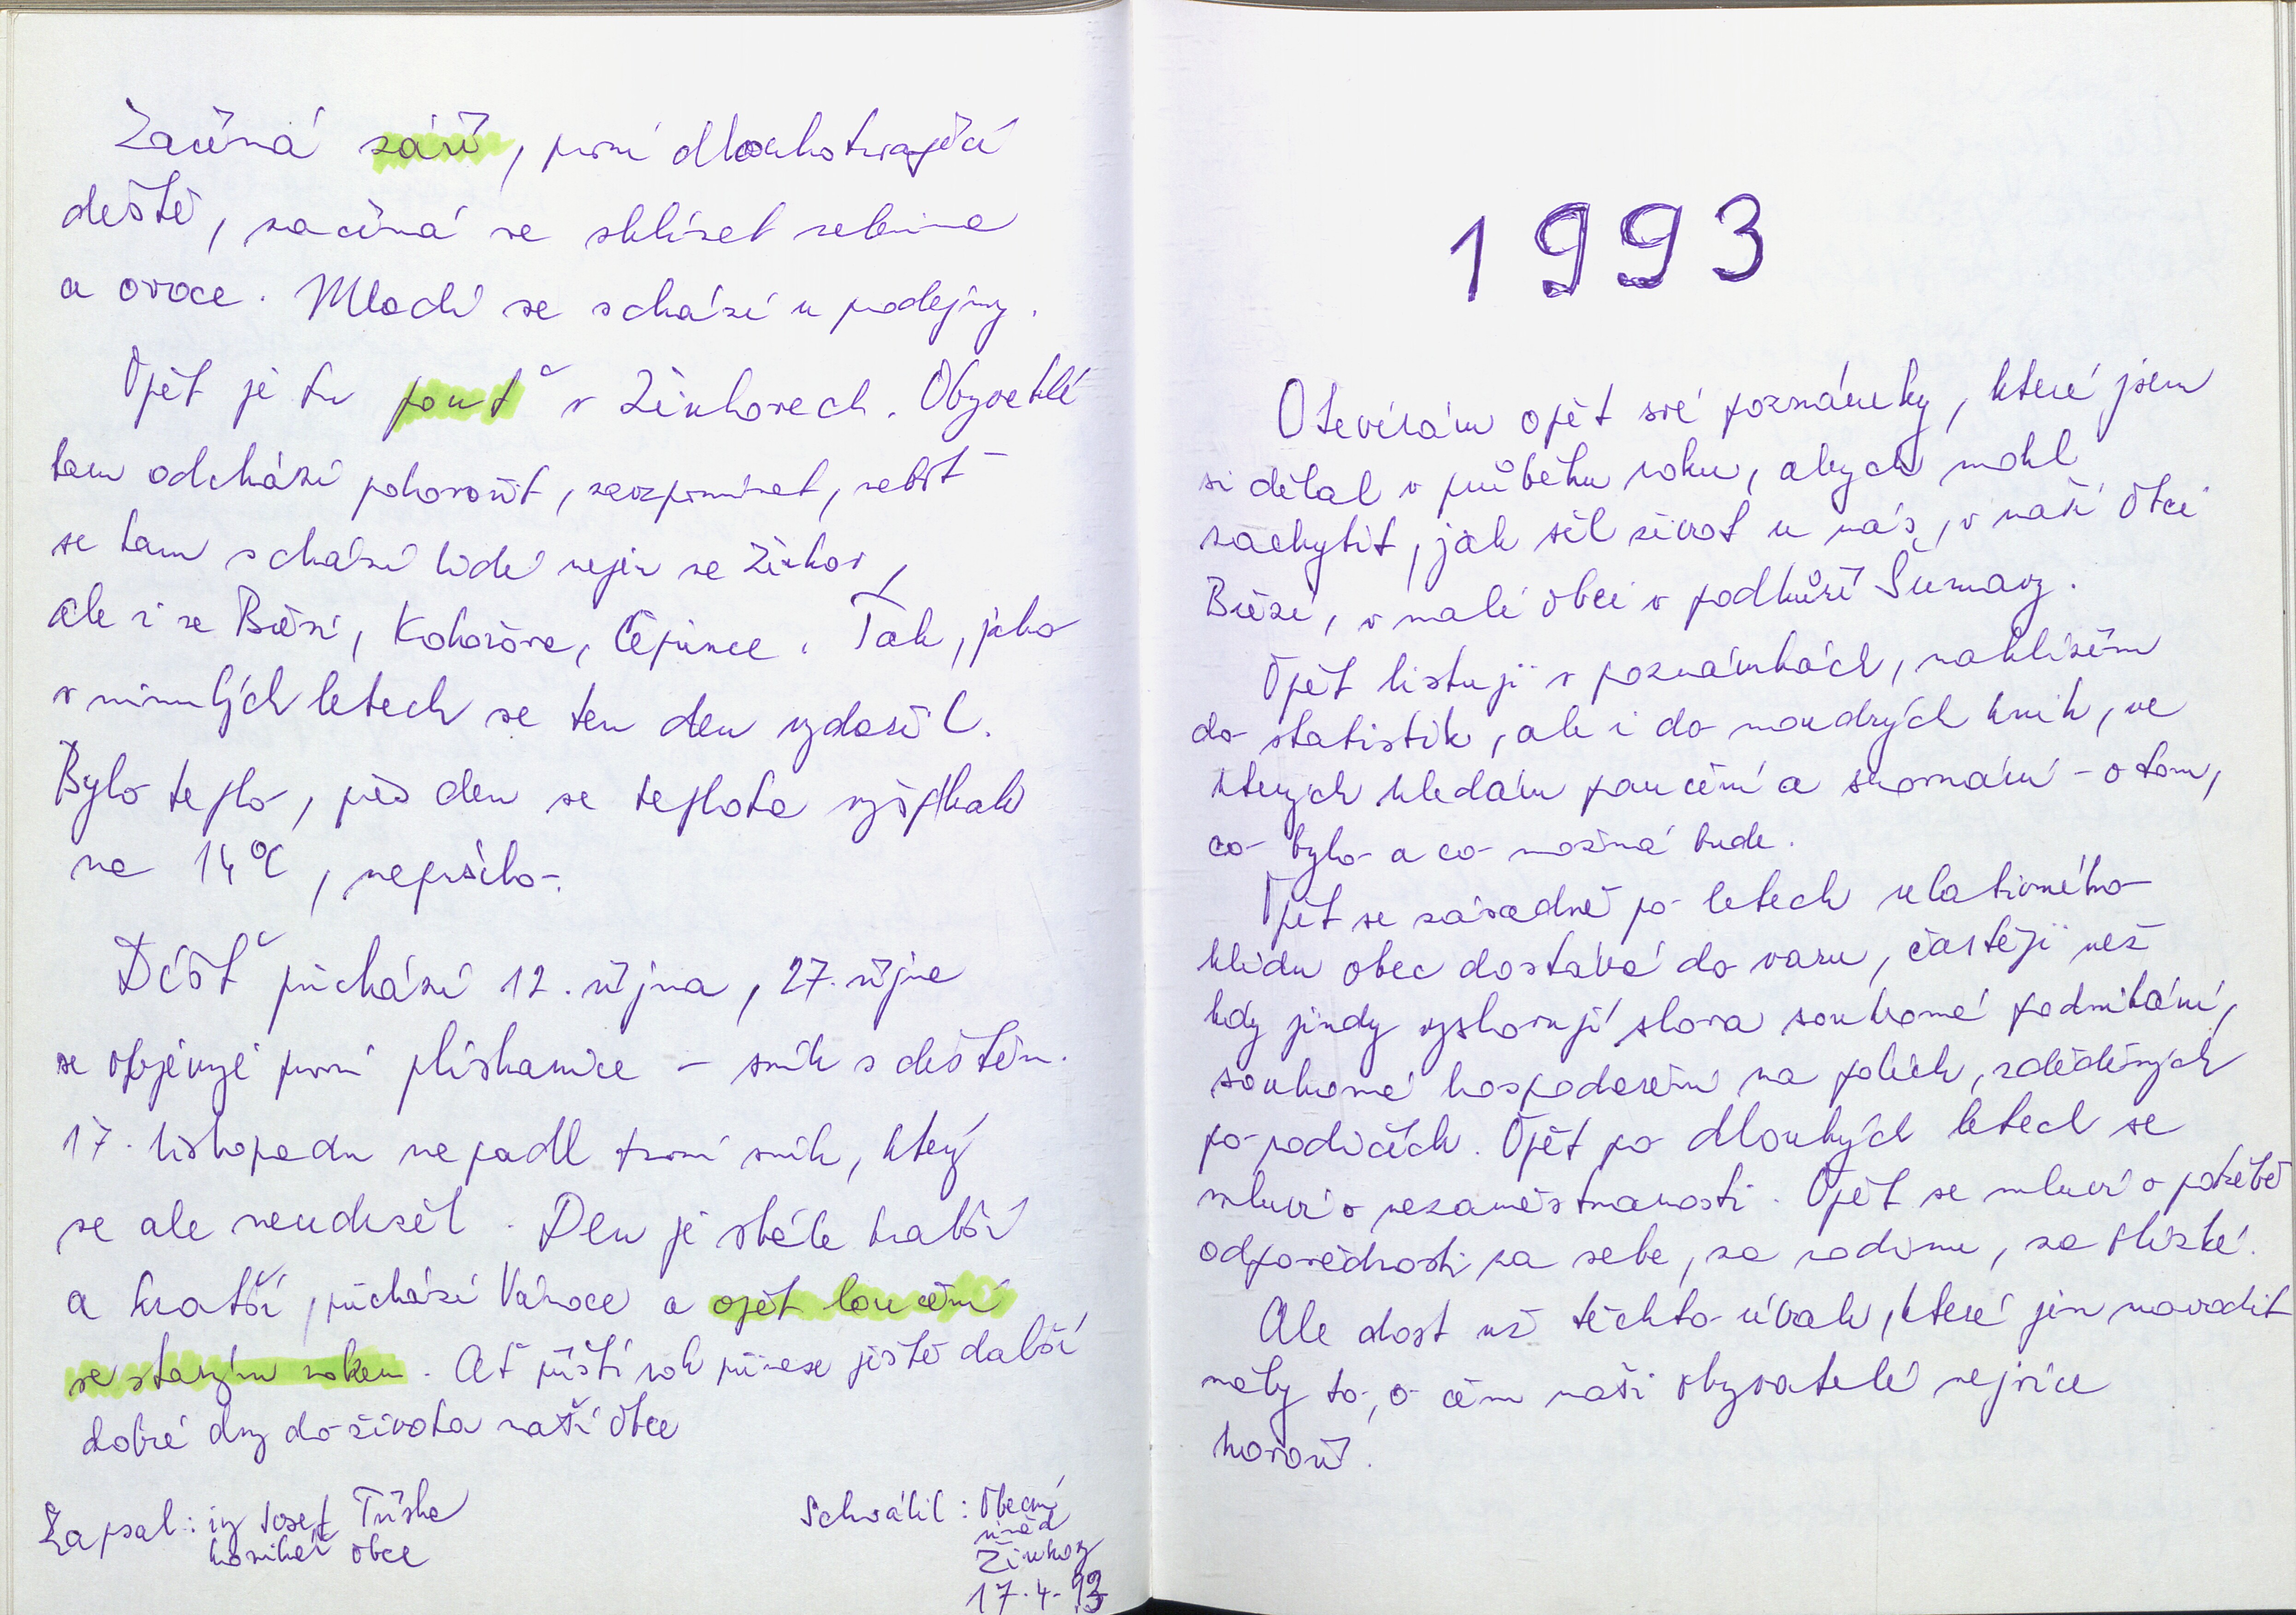 Začíná září, první dlouhotrvající
deště, začíná se sklízet zelenina
a ovoce. Mladí se schází u prodejny.
Opět je tu pouť v Žinkovech. Obyvatelé
tam odchází pohovořit, zavzpomínat, neboť
se tam schází lidé nejen ze Žinkov,
ale i z Březí, Kokořova, Čepince. Tak, jako
v minulých letech se ten den vydařil.
Bylo teplo, přes den se teplota vyšplhala
na 14°C, nepršelo.
Déšť přichází 12. října, 27. října
se objevuje první plískanice – sníh s deštěm.
17. listopadu napadl první sníh, který
se ale neudržel. Den je stále kratší
a kratší, přichází Vánoce a opět loučení
se starým rokem. Ať příští rok přinese ještě další
dobré dny do života naší obce
Zapsal: ing Josef
kronikář obce
Schválil: Obecní
úřad
Žinkovy
17.4.93
1993
Otevírám opět své poznámky, které jsem
si dělal v průběhu roku, abych mohl
zachytit, jak šel život u nás, v naší obci
Březí, v malé obci v podhůří Šumavy.
Opět listuji v poznámkách, nahlížím
do statistik, ale i do moudrých knih, ve
kterých hledám poučení a srovnání – o tom,
co bylo a co možná bude.
Opět se zásadně po letech relativního
klidu obec dostává do varu, častěji než
kdy jindy vyslovují slova soukromé podnikání,
soukromé hospodaření na polích, zděděných
po rodičích. Opět po dlouhých letech se
mluví o nezaměstnanosti. Opět se mluví o potřebě
odpovědnosti za sebe, za rodinu, za blízké.
Ale dost už těchto úvah, které jen navodit
měly to, o čem naši obyvatelé nejvíce
hovoří.